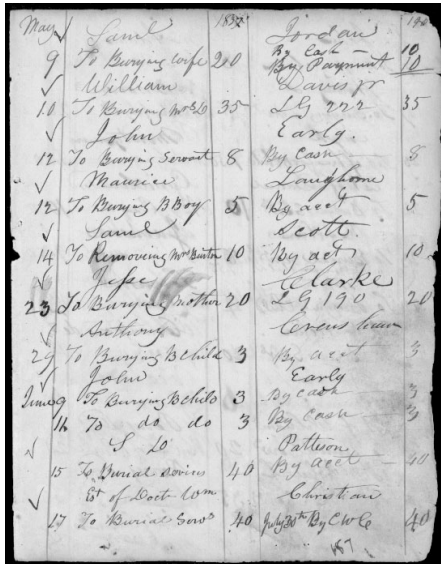 May 1832 183
Saml Jordan
By Cash — 10
9 To Burying wife 20 By Payment 10
William Davis Jr
10 To Burying Mrs D 35 LG 222 35
John Early.
12 To Burying Servant 8 By Cash 8
Maurice Langhorne
12 To Burying B Boy 5 By acct 5
Saml Scott.
14 To Removeing Mrs Burton 10 By act 10
Jesse Clarke
23 To Burying Mother 20 LG 190 20
Anthony
29 To Burying B Child 3 By acct 3
John Early
June 9 To Burying B Child 3 By Cash 3
16 To do do 3 By Cash — 3
Patteson
15 To Burial 40 By acct — 40
Est of Doct Wm Christian
17 To Burial Servs 40 July 30th By C W C 40
187